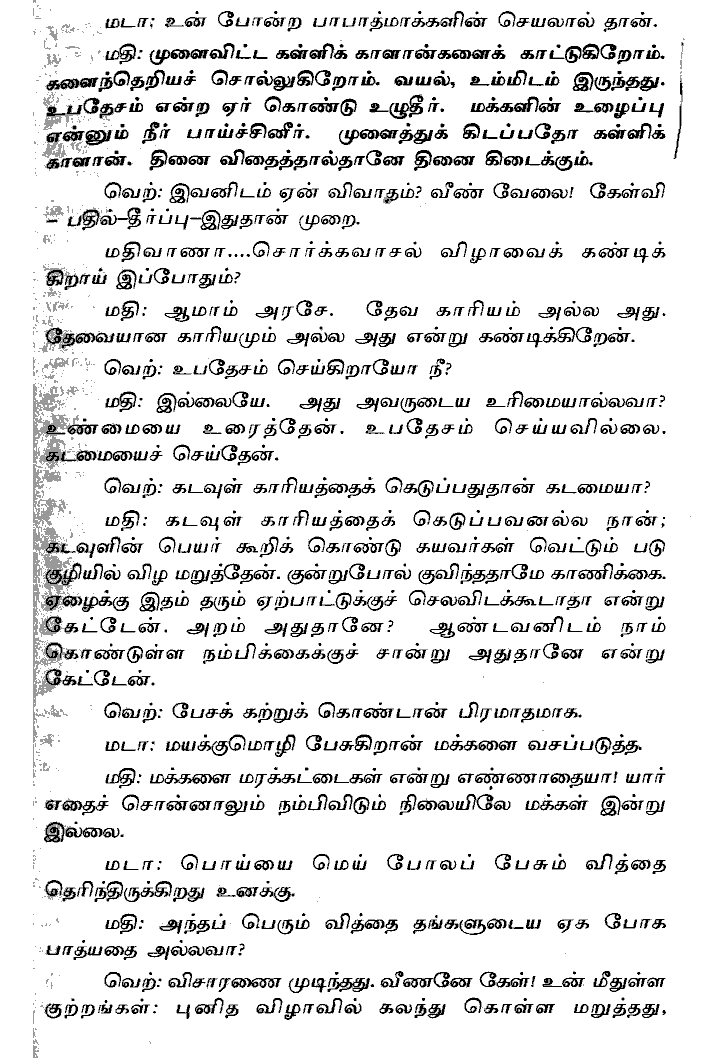 மடா: உன் போன்ற பாபாத்மாக்களின் செயலால் தான்.
மதி: முளைவிட்ட கள்ளிக் காளான்களைக் காட்டுகிறோம்.
களைந்தெறியச் சொல்லுகிறோம். வயல், உம்மிடம் இருந்தது.
உபதேசம் என்ற ஏர் கொண்டு உழுதீர். மக்களின் உழைப்பு
என்னும் நீர் பாய்ச்சினீர். முளைத்துக் கிடப்பதோ கள்ளிக்
காளான். தினை விதைத்தால்தானே தினை கிடைக்கும்.
வெற்: இவனிடம் ஏன் விவாதம்? வீண் வேலை! கேள்வி
– பதில்–தீர்ப்பு–இதுதான் முறை.
மதிவாணா....சொர்க்கவாசல் விழாவைக் கண்டிக்
கிறாய் இப்போதும்?
மதி: ஆமாம் அரசே. தேவ காரியம் அல்ல அது.
தேவையான காரியமும் அல்ல அது என்று கண்டிக்கிறேன்.
வெற்: உபதேசம் செய்கிறாயோ நீ?
மதி: இல்லையே. அது அவருடைய உரிமையால்லவா?
உண்மையை உரைத்தேன். உபதேசம் செய்யவில்லை.
கடமையைச் செய்தேன்.
வெற்: கடவுள் காரியத்தைக் கெடுப்பதுதான் கடமையா?
மதி: கடவுள் காரியத்தைக் கெடுப்பவனல்ல நான்;
கடவுளின் பெயர் கூறிக் கொண்டு கயவர்கள் வெட்டும் படு
குழியில் விழ மறுத்தேன். குன்றுபோல் குவிந்ததாமே காணிக்கை.
ஏழைக்கு இதம் தரும் ஏற்பாட்டுக்குச் செலவிடக்கூடாதா என்று
கேட்டேன். அறம் அதுதானே? ஆண்டவனிடம் நாம்
கொண்டுள்ள நம்பிக்கைக்குச் சான்று அதுதானே என்று
கேட்டேன்.
வெற்: பேசக் கற்றுக் கொண்டான் பிரமாதமாக.
மடா: மயக்குமொழி பேசுகிறான் மக்களை வசப்படுத்த.
மதி: மக்களை மரக்கட்டைகள் என்று எண்ணாதையா! யார்
எதைச் சொன்னாலும் நம்பிவிடும் நிலையிலே மக்கள் இன்று
இல்லை.
மடா: பொய்யை மெய் போலப் பேசும் வித்தை
தெரிந்திருக்கிறது உனக்கு.
மதி: அந்தப் பெரும் வித்தை தங்களுடைய ஏக போக
பாத்யதை அல்லவா?
வெற்: விசாரணை முடிந்தது. வீணனே கேள்! உன் மீதுள்ள
குற்றங்கள்: புனித விழாவில் கலந்து கொள்ள மறுத்தது,